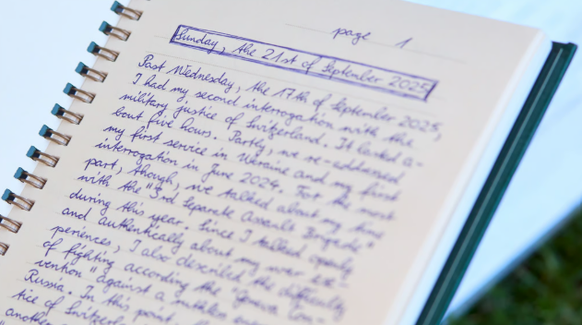 page 1
Sunday, the 21st of September 2025
Past Wednesday, the 17th of September 2025,
I had my second interrogation with the
military justice of Switzerland. It lasted a-
bout five hours. Partly, we re-addressed
my first service in Ukraine and my first
interrogation in June 2024. For the most
part, though, we talked about my time
with the "3rd Separate Assault Brigade"
during this year. Since I talked openly
and authentically about my war ex-
periences, I also described the difficulty
of fighting according the "Geneva Con-
vention" against a ruthless
Russia. In this point,
tice of Switzerland
another